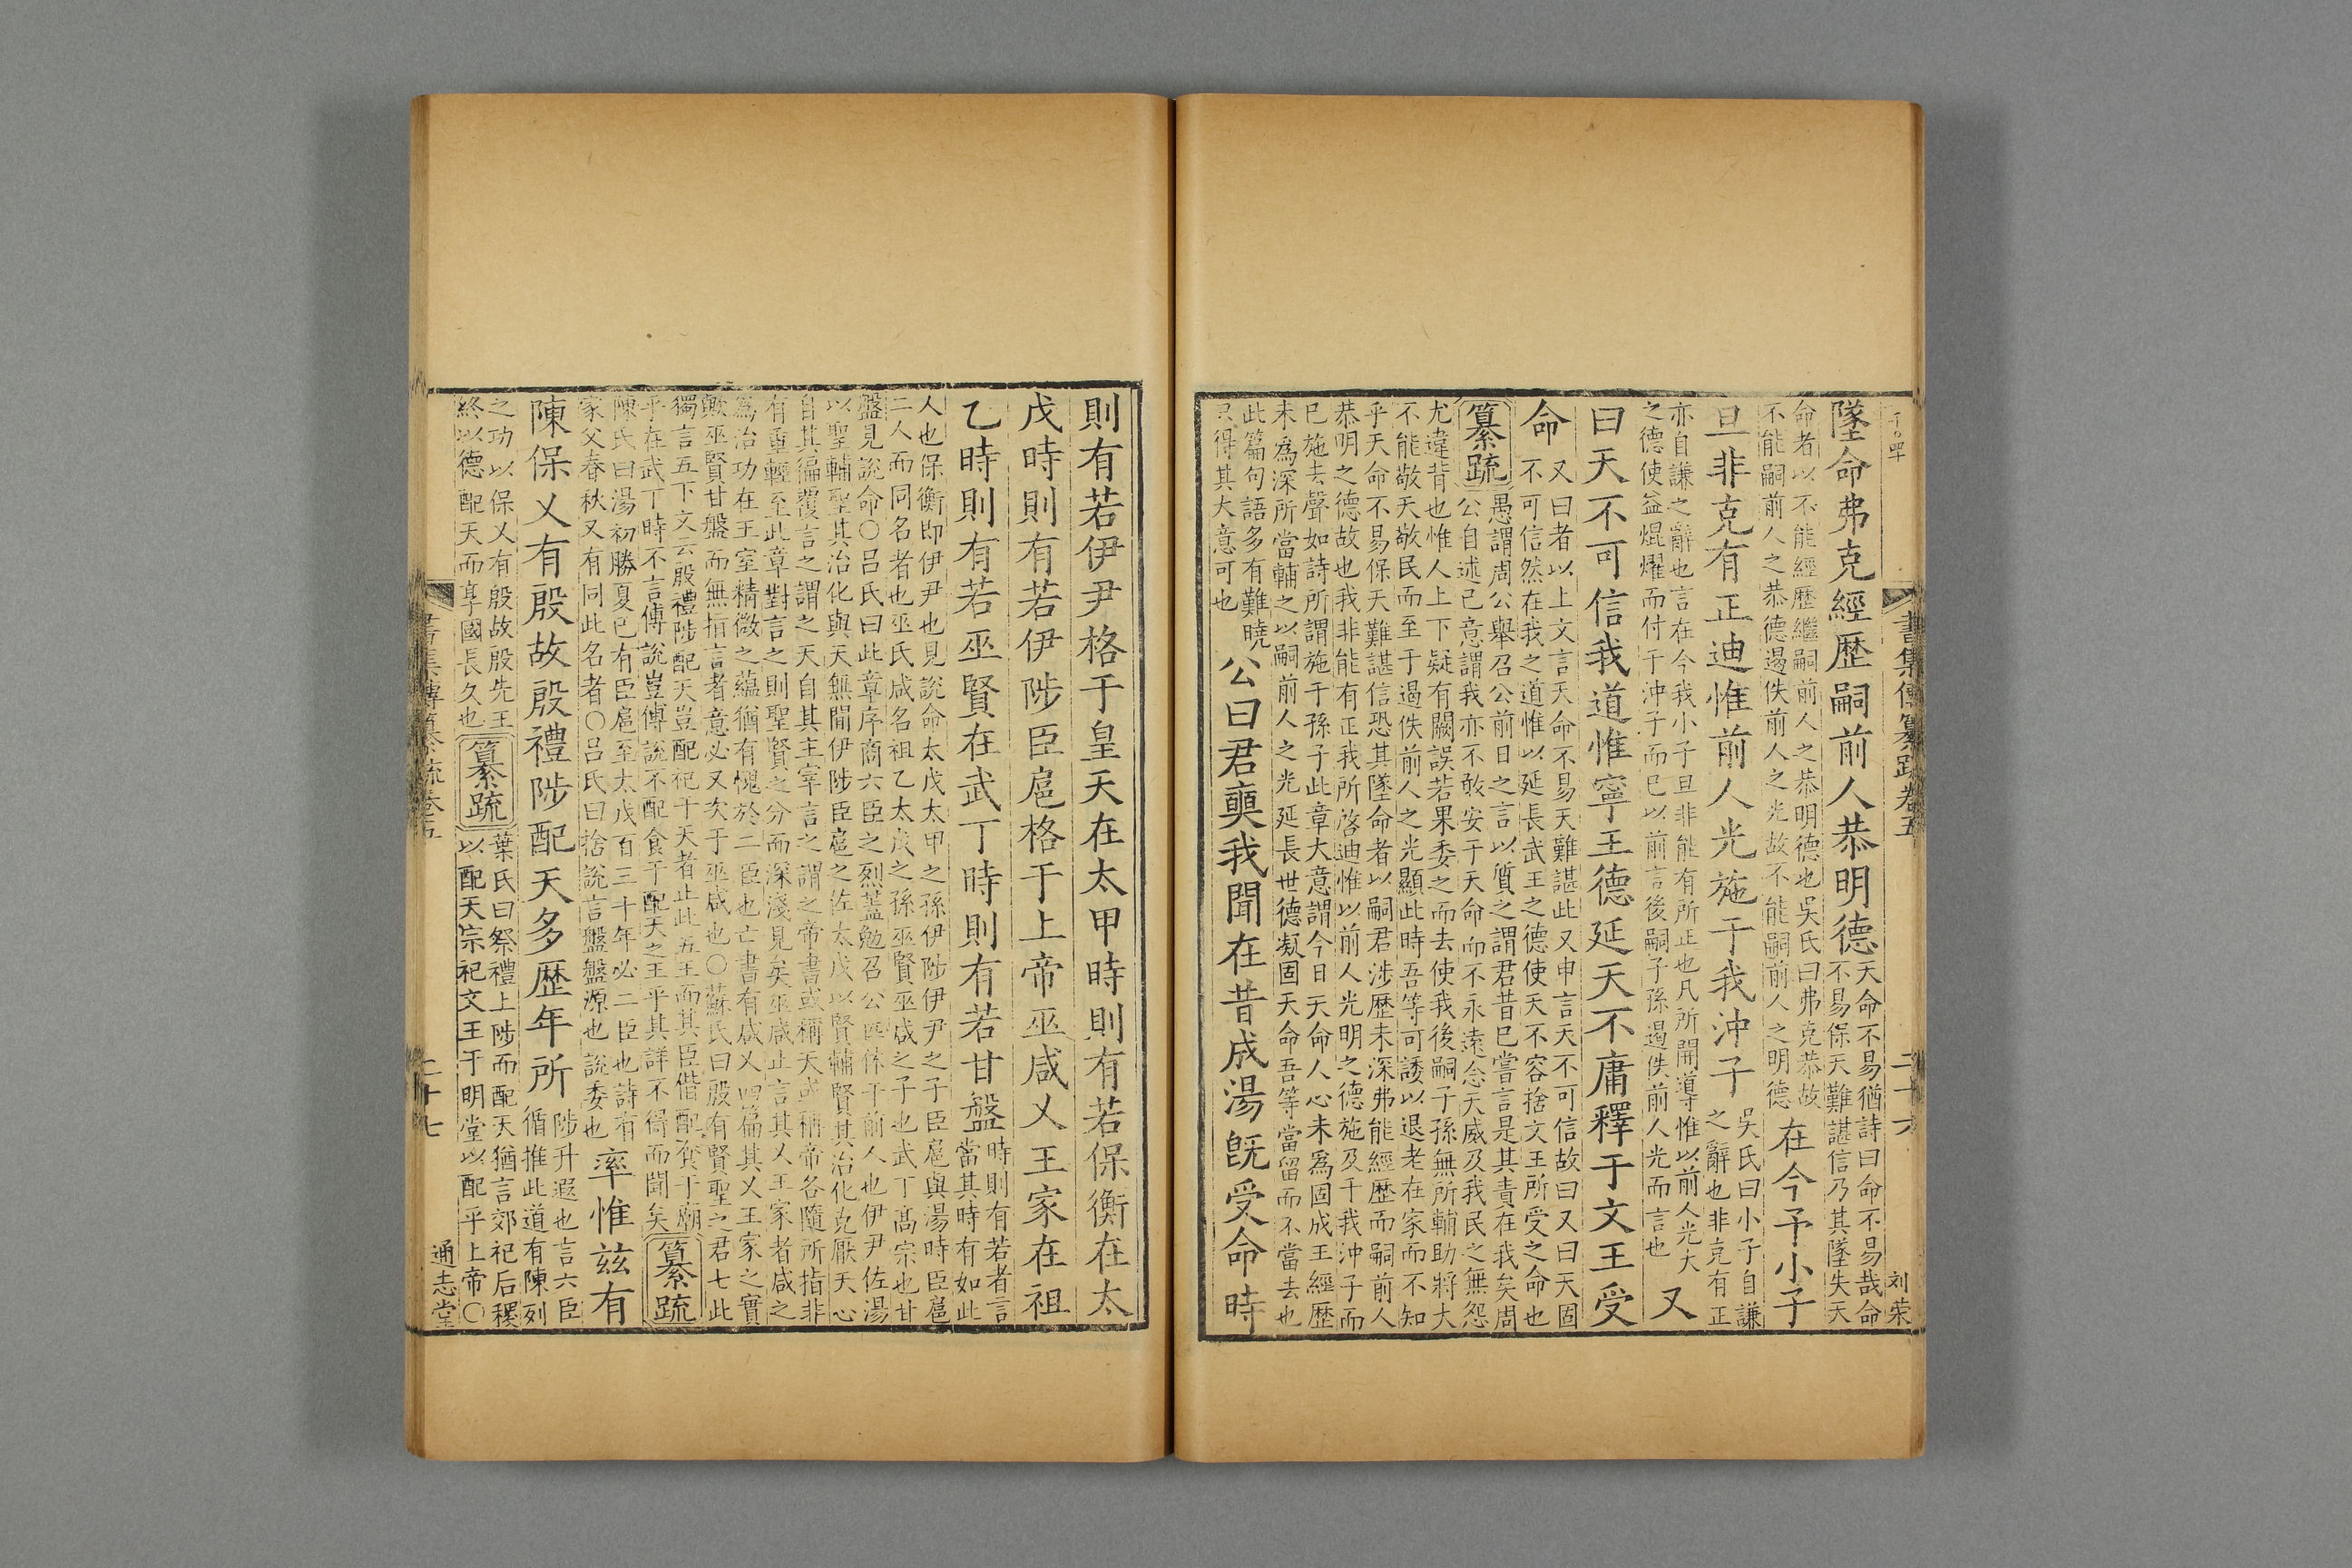 書集傳纂疏卷五
二十六
刘荣
墜命弗克經歷嗣前人恭明德
天命不易猶詩曰命不易哉命
不易保天難諶信乃其墜失天
命者以不能經歷繼嗣前人之恭明德也吳氏曰弗克恭故
不能嗣前人之恭德遏佚前人之光故不能嗣前人之明德
在今予小子
旦非克有正迪惟前人光施于我沖子
吳氏曰小子自謙
之辭也非克有正
亦自謙之辭也言在今我小子旦非能有所正也凡所開導惟以前人光大
之德使益焜燿而付于沖子而已以前言後嗣子孫遏佚前人光而言也
又
曰天不可信我道惟寧王德延天不庸釋于文王受
命
又曰者以上文言天命不易天難諶此又申言天不可信故曰又曰天固
不可信然在我之道惟以延長武王之德使天不容捨文王所受之命也
纂疏
愚謂周公舉召公前日之言以質之謂君昔已嘗言是其責在我矣周
公自述己意謂我亦不敢安于天命而不永遠念天威及我民之無怨
尤違背也惟人上下疑有闕誤若果委之而去使我後嗣子孫無所輔助將大
不能敬天敬民而至于遏佚前人之光顯此時吾等可諉以退老在家而不知
乎天命不易保天難諶信恐其墜命者以嗣君涉歷未深弗能經歷而嗣前人
恭明之德故也我非能有正我所啓迪惟以前人光明之德施及于我沖子而
已施去聲如詩所謂施于孫子此章大意謂今日天命人心未爲固成王經歷
未爲深所當輔之以嗣前人之光延長世德凝固天命吾等當留而不當去也
此篇句語多有難曉
只得其大意可也
公曰君奭我聞在昔成湯旣受命時
則有若伊尹格于皇天在太甲時則有若保衡在太
戊時則有若伊陟臣扈格于上帝巫咸乂王家在祖
乙時則有若巫賢在武丁時則有若甘盤
時則有若者言
當其時有如此
人也保衡即伊尹也見說命太戊太甲之孫伊陟伊尹之子臣扈與湯時臣扈
二人而同名者也巫氏咸名祖乙太戊之孫巫賢巫咸之子也武丁高宗也甘
盤見說命○呂氏曰此章序商六臣之烈蓋勉召公匹休于前人也伊尹佐湯
以聖輔聖其治化與天無間伊陟臣扈之佐太戊以賢輔賢其治化克厭天心
自其徧覆言之謂之天自其主宰言之謂之帝書或稱天或稱帝各隨所指非
有重輕至此章對言之則聖賢之分而深淺見矣巫咸止言其乂王家者咸之
爲治功在王室精微之蘊猶有愧於二臣也亡書有咸乂四篇其乂王家之實
歟巫賢甘盤而無指言者意必又次于巫咸也○蘇氏曰殷有賢聖之君七此
獨言五下文云殷禮陟配天豈配祀于天者止此五王而其臣偕配食于廟
乎在武丁時不言傅說豈傅說不配食于配天之王乎其詳不得而聞矣
纂疏
陳氏曰湯初勝夏已有臣扈至太戊百三十年必二臣也詩有
家父春秋又有同此名者○呂氏曰捨說言盤盤源也說委也
率惟兹有
陳保乂有殷故殷禮陟配天多歷年所
陟升遐也言六臣
循推此道有陳列
之功以保乂有殷故殷先王
終以德配天而享國長久也
纂疏
葉氏曰祭禮上陟而配天猶言郊祀后稷
以配天宗祀文王于明堂以配乎上帝○
書集傳纂疏卷五
二十七
通志堂